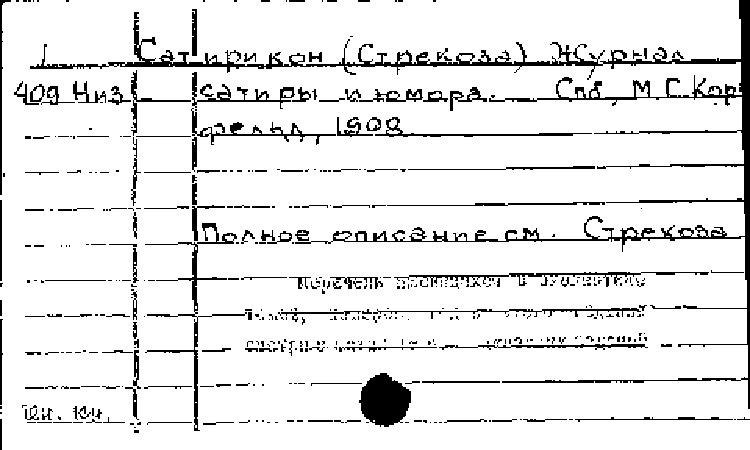 1 Сатирикон (Стрекоза) Журнал
409 Низ сатиры и юмора. Спб, М.Г.Кор
фельд, 1908
Полное описание см. Стрекоза
Перечень имеющихся в библиотеке
Ин. Кч.